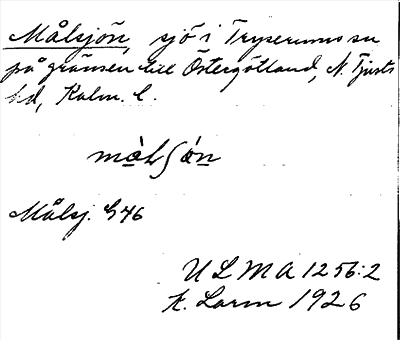 Målsjön, sjö i Tryserums sn
på gränsen till Östergötland, N. Tjusts
hd, Kalm. l.
målsjön
Målsj. G46
ULMA 1256:2
K. Lorm 1926